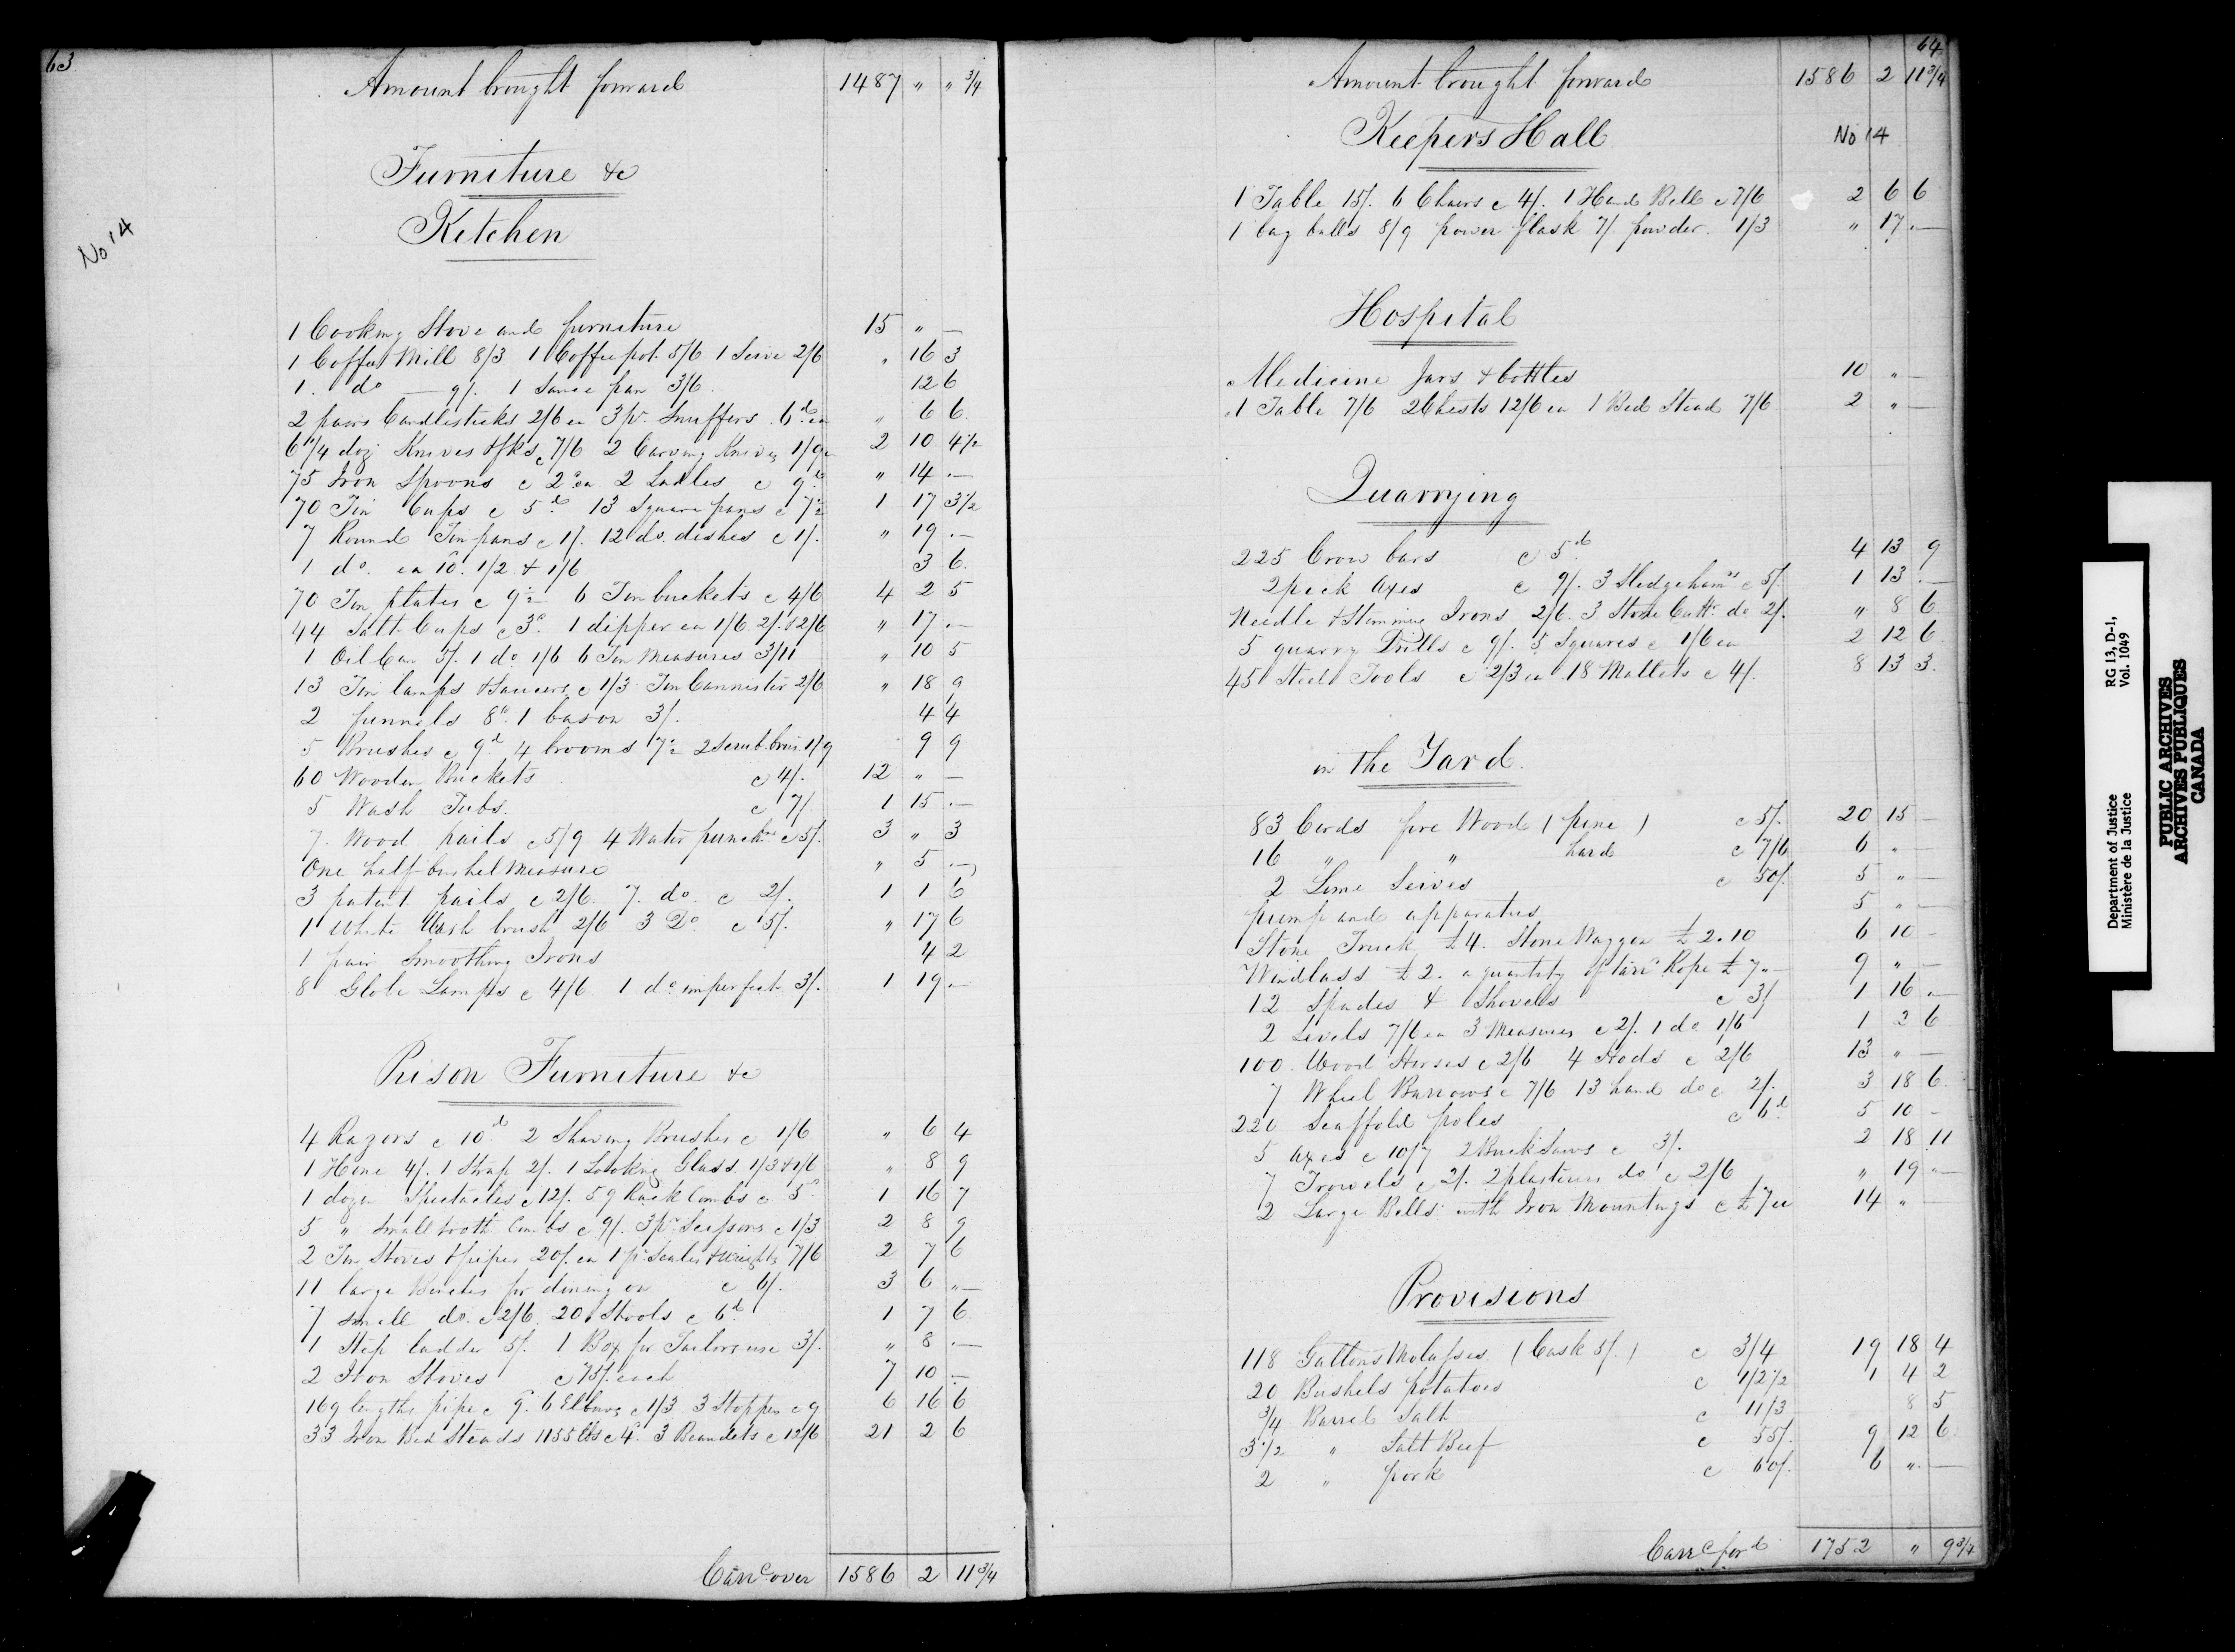 63
Amount brought forward 1487 " " 3/4
No 14
Furniture &c
Kitchen
1 Cooking Stove and furniture 15 " —
1 Coffee Mill 8/3 1 Coffee pot 5/6 1 Seive 2/6 " 16 3
1 do — 9/. 1 Sauce pan 3/6 12 6
2 pairs Candlesticks 2/6 ea 3 pr Snuffers 6d ea " 6 6
6 1/4 doz Knives & fks c 7/6 2 Carving Knives 1/9 2 10 4 1/2
75 Iron Spoons c 2d ea 2 Ladles c 9d " 14 —
70 Tin Cups c 5d 13 Square pans c 7 1 17 3 1/2
7 Round Tin pans c 1/. 12 do. dishes c 1/. " 19 —
1 do. ea 10d. 1/2 & 1/6 3 6
70 Tin plates c 9 6 Tin buckets c 4/6 4 2 5
44 Salt Cups c 3d. 1 dipper ea 1/6 2/. & 2/6 " 17 —
1 Oil Can 5/. 1 do 1/6 6 Tin Measures 3/11 " 10 5
13 Tin lamps & Saucers c 1/3 Tin Cannister 2/6 " 18 9
2 funnels 8d. 1 bason 3/. 4 4
5 Brushes c 9d 4 brooms 7 2 Scrub. brus. 1/9 9 9
60 Wooden Buckets c 4/. 12 " —
5 Wash Tubs. c 7/. 1 15 —
7 Wood pails c 5/9 4 Water punchs c 5/. 3 " 3
One half bushel Measure " 5 —
3 patent pails c 2/6. 7. do. c 2/. 1 1 6
1 White Wash brush 2/6 3 Do c 5/. " 17 6
1 pair Smoothing Irons 4 2
8 Globe Lamps c 4/6 1 do imperfect 3/. 1 19 —
Prison Furniture &c
4 Razors c 10d 2 Shaving Brushes c 1/6 " 6 4
1 Hone 4/. 1 Strap 2/. 1 Looking Glass 1/3 & 1/6 " 8 9
1 dozen Spectacles c 12/. 59 Rack Combs c 5d 1 16 7
5 " Small tooth Combs c 9/. 3 pr Scissors c 1/3 2 8 9
2 Tin Stoves & pipes 20/. ea 1 pr Scales & Weights 7/6 2 7 6
11 large Benches for dining on c 6/. 3 6 " —
7 small do. c 2/6. 20 Stools c 6d 1 7 6
1 Step ladder 5/. 1 Box for Tailors use 3/. " 8 —
2 Iron Stoves c 75/. each 7 10 —
169 lengths pipe c 9d. 6 Elbows c 1/3 3 Stoppers c 9 6 16 6
33 Iron Bed Steads 1155 lbs c 4d. 3 c 12/6 21 2 6
Carrd over 1586 2 11 3/4
64
Amount brought forward 1586 2 11 3/4
Keepers Hall No 14
1 Table 15/. 6 Chairs c 4/. 1 Hand Bell c 7/6 2 6 6
1 bag balls 8/9 power flask 7/. powder. 1/3 " 17 —
Hospital
Medicine Jars & bottles 10 " —
1 Table 7/6 2 Chests 12/6 ea 1 Bed Stead 7/6 2 " —
Quarrying
225 Crow bars c 5d 4 13 9
2 pick axes c 9/. 3 Sledgehamrs c 5/. 1 13 —
Needle & Stemming Irons 2/6. 3 Stone Cuttr do 2/. " 8 6
5 quarry Drills c 9/. 5 Squares c 1/6 ea 2 12 6
45 Steel Tools c 2/3 ea 18 Mallets c 4/. 8 13 3
in the Yard.
83 Cords fire Wood ( pine ) c 5/. 20 15 —
16 " " hard c 7/6 6 " —
2 Lime Seives c 50/. 5 " —
pump and apparatus 5 " —
Stone Truck £4. Stone Waggon £2.10 6 10 —
Windlass £2. a quantity of tarrd Rope £7 " — 9 " —
12 Spades & Shovels c 3/. 1 16 —
2 Levels 7/6 ea 3 Measures c 2/. 1 do 1/6 1 2 6
100 Wood Horses c 2/6 4 Hods c 2/6 13 " —
7 Wheel Barrows c 7/6 13 hand do c 2/. 3 18 6
220 Scaffold poles c 6d 5 10 —
5 axes c 10/7 2 Buck Saws c 3/. 2 18 11
7 Trowels c 2/. 2 plasterers do c 2/6 " 19 —
2 Large Bells with Iron Mountings c £7 ea 14 " —
Provisions
118 Gallons Molasses. ( Cask 5/. ) c 3/4 19 18 4
20 Bushels potatoes c 1/2 1/2 1 4 2
3/4 Barrel Salt c 11/3 8 5
3 1/2 " Salt Beef c 55/. 9 12 6
2 " pork c 60/. 6 " —
Carrd ford 1752 " 9 3/4
Department of Justice
Ministère de la Justice
RG 13, D-1,
Vol. 1049
PUBLIC ARCHIVES
ARCHIVES PUBLIQUES
CANADA